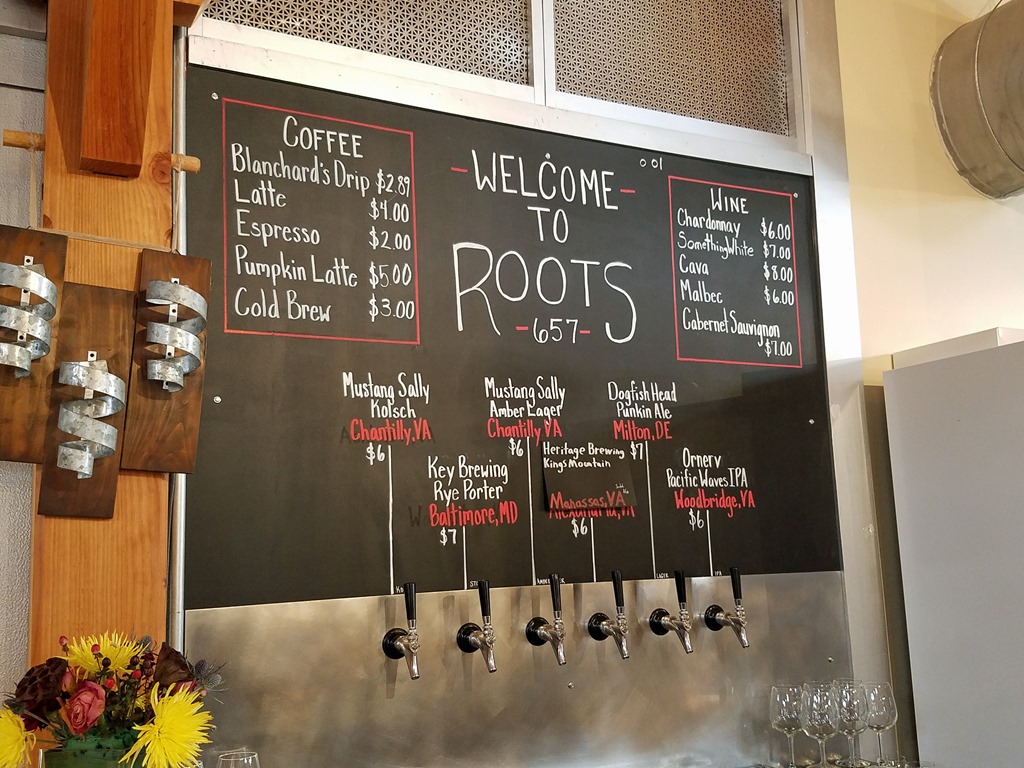 COFFEE
Blanchard's Drip $2.89
Latte $4.00
Espresso $2.00
Pumpkin Latte $5.00
Cold Brew $3.00
-WELCOME-
TO
ROOTS
-657-
WINE
Chardonnay $6.00
Something White $7.00
Cava $8.00
Malbec $6.00
Cabernet Sauvignon
$7.00
Mustang Sally
Kolsch
Chantilly, VA
$6
Mustang Sally
Amber Lager
Chantilly, VA
$6
Dogfish Head
Punkin Ale
Milton, DE
$7
Key Brewing
Rye Porter
Baltimore, MD
$7
Heritage Brewing
Kings Mountain
Manassas, VA
Alexandria, VA
$6
Ornery
Pacific Waves IPA
Woodbridge, VA
$6
LAGER
IPA